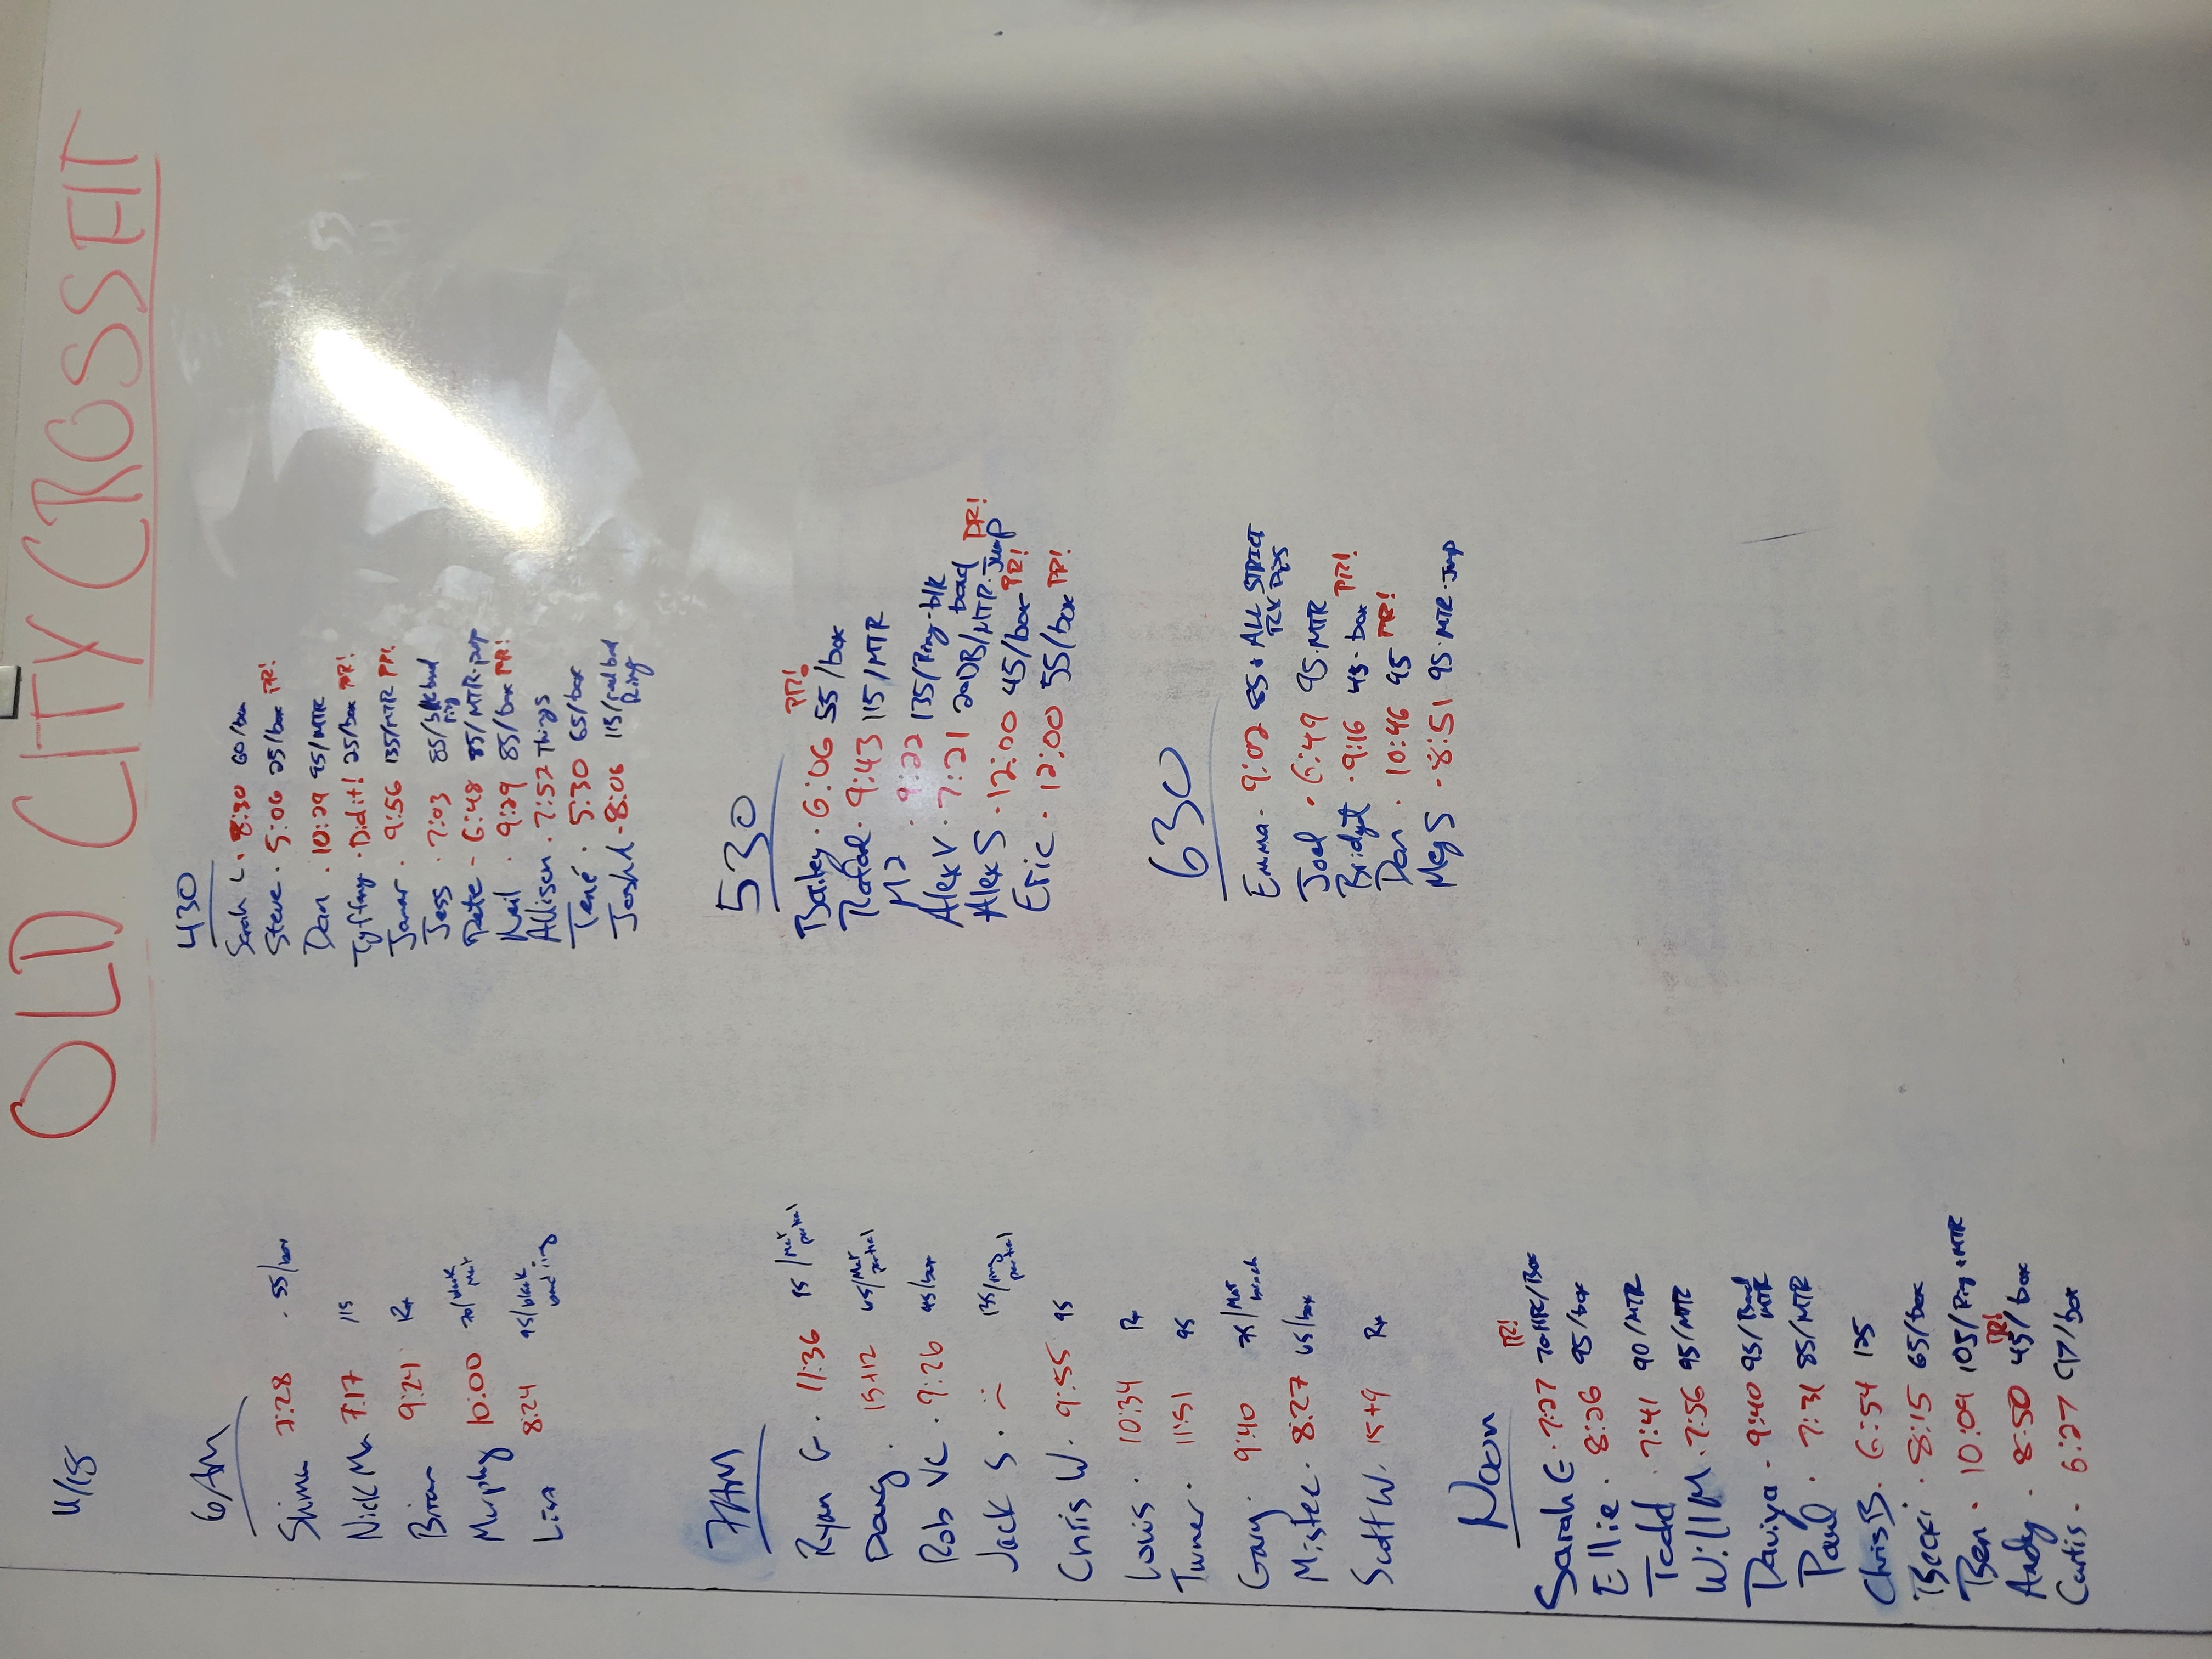 OLD CITY CROSSFIT
11/15
6AM
7:28 . 55/box
Nick Mc 7:17 115
Brian 9:21 Rx
Murphy 10:00
Lisa 8:24 95/black band ring
7AM
Ryan G. 11:36 95/Mat partial
Doug. 15+12 65/Mat partial
Rob VC. 9:26 95/box
Jack S. :- 135/ring partial
Chris W. 9:55 95
Louis. 10:34 Rx
Turner. 11:51 95
Gary. 9:10 75/Mat
Mistec. 8:27 65/box
Scott W. 15+9 Rx
Noon
Sarah E. 7:27 70 /Box PR!
Ellie. 8:26 95/box
Todd. 7:41 90/MTR
Will M. 7:56 95/MTR
Daviya - 9:40 95/Band MTR
Paul. 7:31 85/MTR
Chris B. 6:54 125
Becki. 8:15 65/box
Ben. 10:09 105/Ring+MTR
Andy. 8:50 45/box PR!
Curtis. 6:27 /box
430
Sarah L. 8:30 60/box
Steve. 5:06 25/box PR!
Dan. 10:29 95/MTR
Tyffany. Did it! 25/box PR!
Jamar. 9:56 135/MTR PR!
Jess. 7:03 85/blk band ring
Pete - 6:48 85/MTR-
Neil. 9:29 85/box PR!
Allison. 7:52 Things
Tené. 5:30 65/box
Josh - 8:06 115/red band Ring
530
Bailey. 6:06 55/box PR!
Rafael. 9:43 115/MTR
M2. 9:22 135/Ring-blk band
Alex V. 7:21 20DB/MTR.Jump PR!
Alex S. 12:00 45/box PR!
Eric. 12:00 55/box PR!
630
Emma. 9:02 85 ALL STRICT
Joel. 6:49 95.MTR
Bridget. 9:16 45-box PR!
Dan. 10:46 95 PR!
Meg S. 8:51 95.MTR.Jump